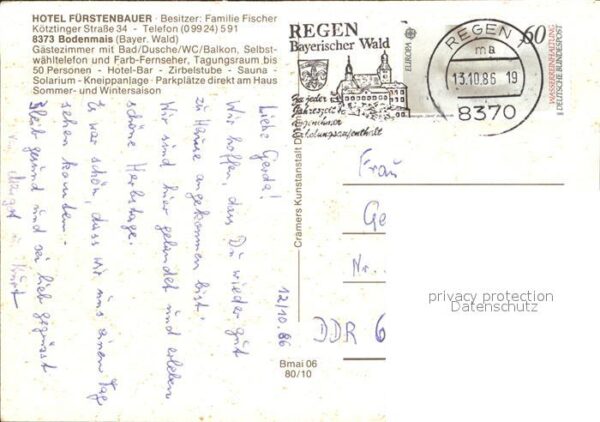 HOTEL FÜRSTENBAUER · Besitzer: Familie Fischer
Kötztinger Straße 34 - Telefon (09924) 591
8373 Bodenmais (Bayer. Wald)
Gästezimmer mit Bad/Dusche/WC/Balkon, Selbst-
wähltelefon und Farb-Fernseher, Tagungsraum bis
50 Personen - Hotel-Bar - Zirbelstube - Sauna -
Solarium - Kneippanlage · Parkplätze direkt am Haus
Sommer- und Wintersaison
REGEN
Bayerischer Wald
Zu jeder
Jahreszeit
Erholungsaufenthalt
EUROPA
REGEN
ma
13.10.86 19
8370
60
WASSERREINHALTUNG
DEUTSCHE BUNDESPOST
Liebe Gerda!
Wir hoffen, dass Du wieder gut
zu Hause angekommen bist!
Wir sind hier gelandet und erleben
schöne Herbsttage.
Es war schön, dass wir uns einen Tag
sehen konnten. -
Bleib gesund und sei lieb gegrüsst
12/10.86
Cramers Kunstanstalt D
Bmai 06
80/10
Frau
Ge
Nr.
DDR 6
privacy protection
Datenschutz